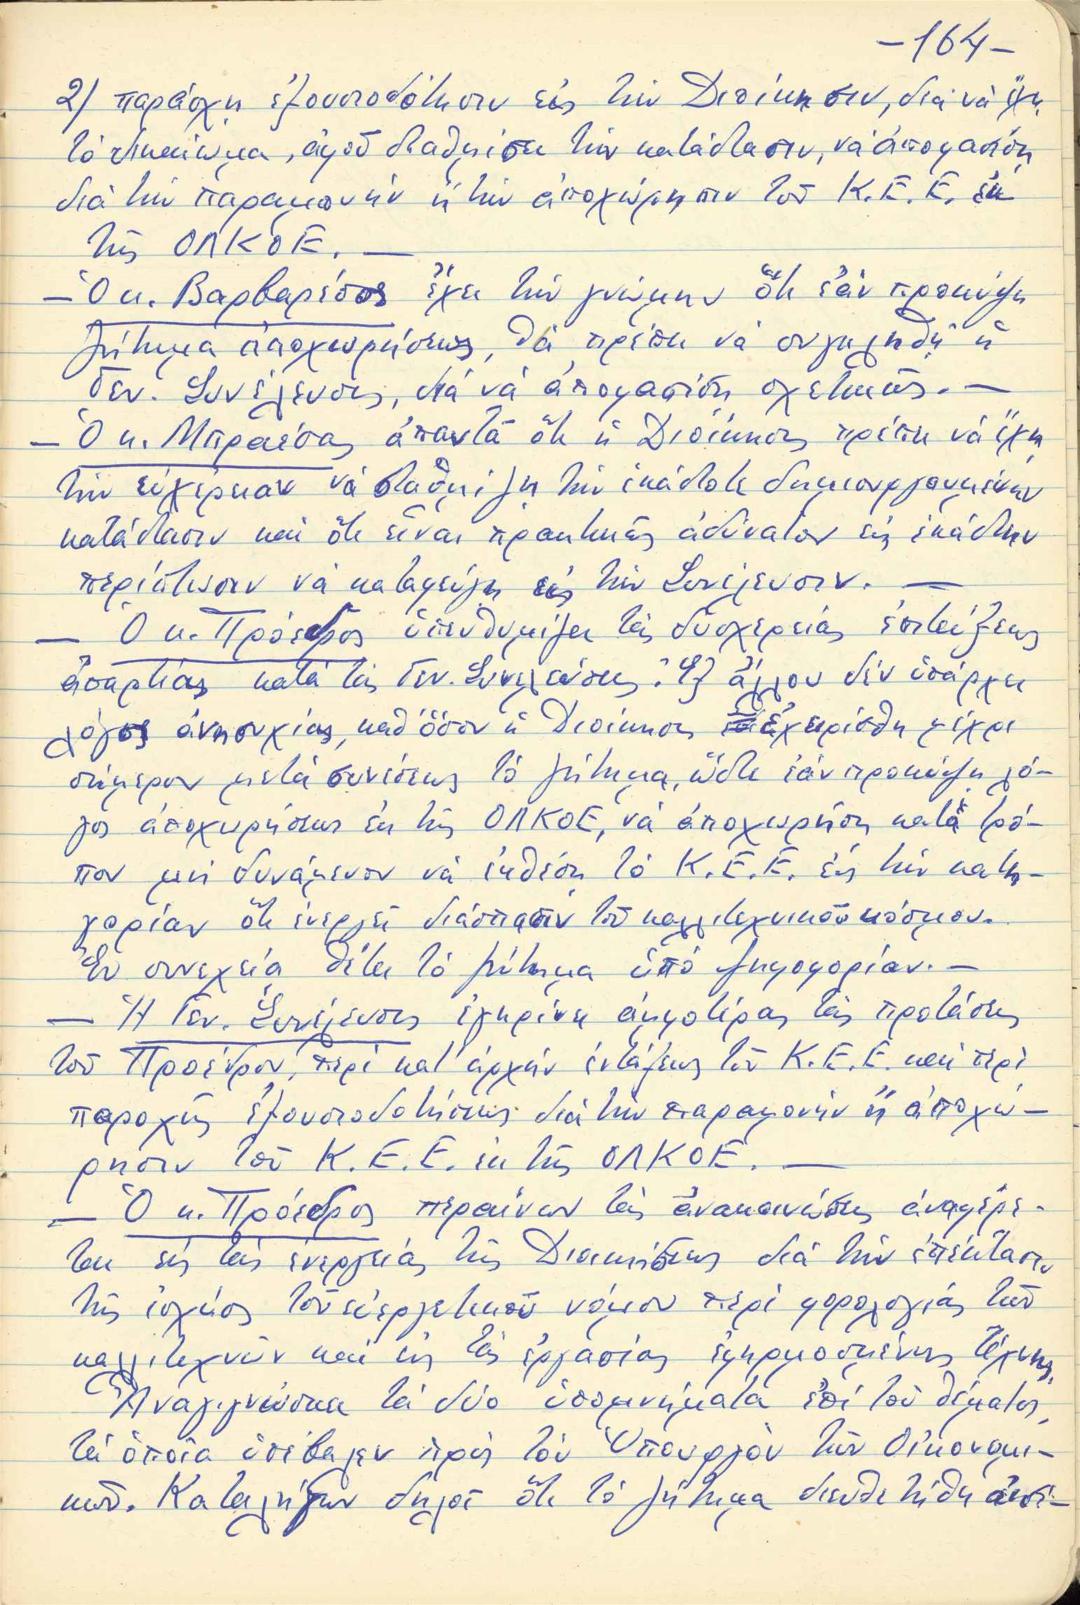 -164-
2) παράσχη ἐξουσιοδότησιν εἰς τὴν Διοίκησιν, διὰ νὰ ἔχη
τὸ δικαίωμα, ἀφοῦ σταθμίση τὴν κατάστασιν, νὰ ἀποφασίση
διὰ τὴν παραμονὴν ἢ τὴν ἀποχώρησιν τοῦ Κ.Ε.Ε. ἐκ
τῆς ΟΛΚΟΕ. —
— Ὁ κ. Βαρβαρέσος ἔχει τὴν γνώμην ὅτι ἐὰν προκύψη
ζήτημα ἀποχωρήσεως, θὰ πρέπει νὰ συγκληθῆ ἡ
Γεν. Συνέλευσις, διὰ νὰ ἀποφασίση σχετικῶς. —
— Ὁ κ. Μπραέσας ἀπαντᾶ ὅτι ἡ Διοίκησις πρέπει νὰ ἔχη
τὴν εὐχέρειαν νὰ σταθμίζη τὴν ἑκάστοτε δημιουργουμένην
κατάστασιν καὶ ὅτι εἶναι πρακτικῶς ἀδύνατον εἰς ἑκάστην
περίπτωσιν νὰ καταφεύγη εἰς τὴν Συνέλευσιν. —
— Ὁ κ. Πρόεδρος ὑπενθυμίζει τὰς δυσχερείας ἐπιτεύξεως
ἀπαρτίας κατὰ τὰς Γεν. Συνελεύσεις. Ἐξ ἄλλου δὲν ὑπάρχει
λόγος ἀνησυχίας, καθ' ὅσον ἡ Διοίκησις ἐχειρίσθη μέχρι
σήμερον μετὰ συνέσεως τὸ ζήτημα, ὥστε ἐὰν προκύψη λό-
γος ἀποχωρήσεως ἐκ τῆς ΟΛΚΟΕ, νὰ ἀποχωρήση κατὰ τρό-
πον μὴ δυνάμενον νὰ ἐκθέση τὸ Κ.Ε.Ε. εἰς τὴν κατη-
γορίαν ὅτι ἐνεργεῖ διάσπασιν τοῦ καλλιτεχνικοῦ κόσμου.
Ἐν συνεχεία θέτει τὸ ζήτημα ὑπὸ ψηφοφορίαν. —
— Ἡ Γεν. Συνέλευσις ἐγκρίνει ἀμφοτέρας τὰς προτάσεις
τοῦ Προέδρου, περὶ κατ' ἀρχὴν ἐντάξεως τοῦ Κ.Ε.Ε. καὶ περὶ
παροχῆς ἐξουσιοδοτήσεως διὰ τὴν παραμονὴν ἢ ἀποχώ-
ρησιν τοῦ Κ.Ε.Ε. ἐκ τῆς ΟΛΚΟΕ. —
— Ὁ κ. Πρόεδρος περαίνων τὰς ἀνακοινώσεις ἀναφέρε-
ται εἰς τὰς ἐνεργείας τῆς Διοικήσεως διὰ τὴν ἐπέκτασιν
τῆς ἰσχύος τοῦ εὐεργετικοῦ νόμου περὶ φορολογίας τῶν
καλλιτεχνῶν καὶ εἰς τὰς ἐργασίας ἐφηρμοσμένης τέχνης.
Ἀναγιγνώσκει τὰ δύο ὑπομνήματα ἐπὶ τοῦ θέματος,
τὰ ὁποῖα ὑπέβαλεν πρὸς τὸν Ὑπουργὸν τῶν Οἰκονομι-
κῶν. Καταλήγων δηλοῖ ὅτι τὸ ζήτημα διευθετήθη αἰσί-